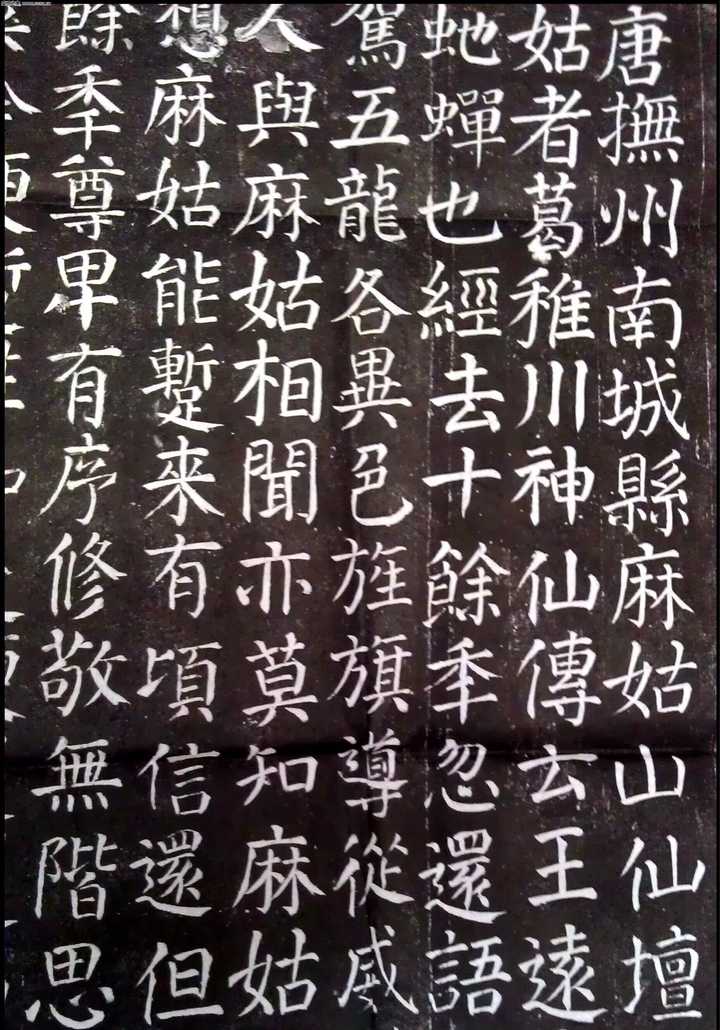 唐撫州南城縣麻姑山仙壇
姑者葛稚川神仙傳云王遠
虵蟬也經去十餘秊忽還語
駕五龍各異色旌旗導從威
人與麻姑相聞亦莫知麻姑
想麻姑能蹔來有頃信還但
餘秊尊卑有序修敬無階思